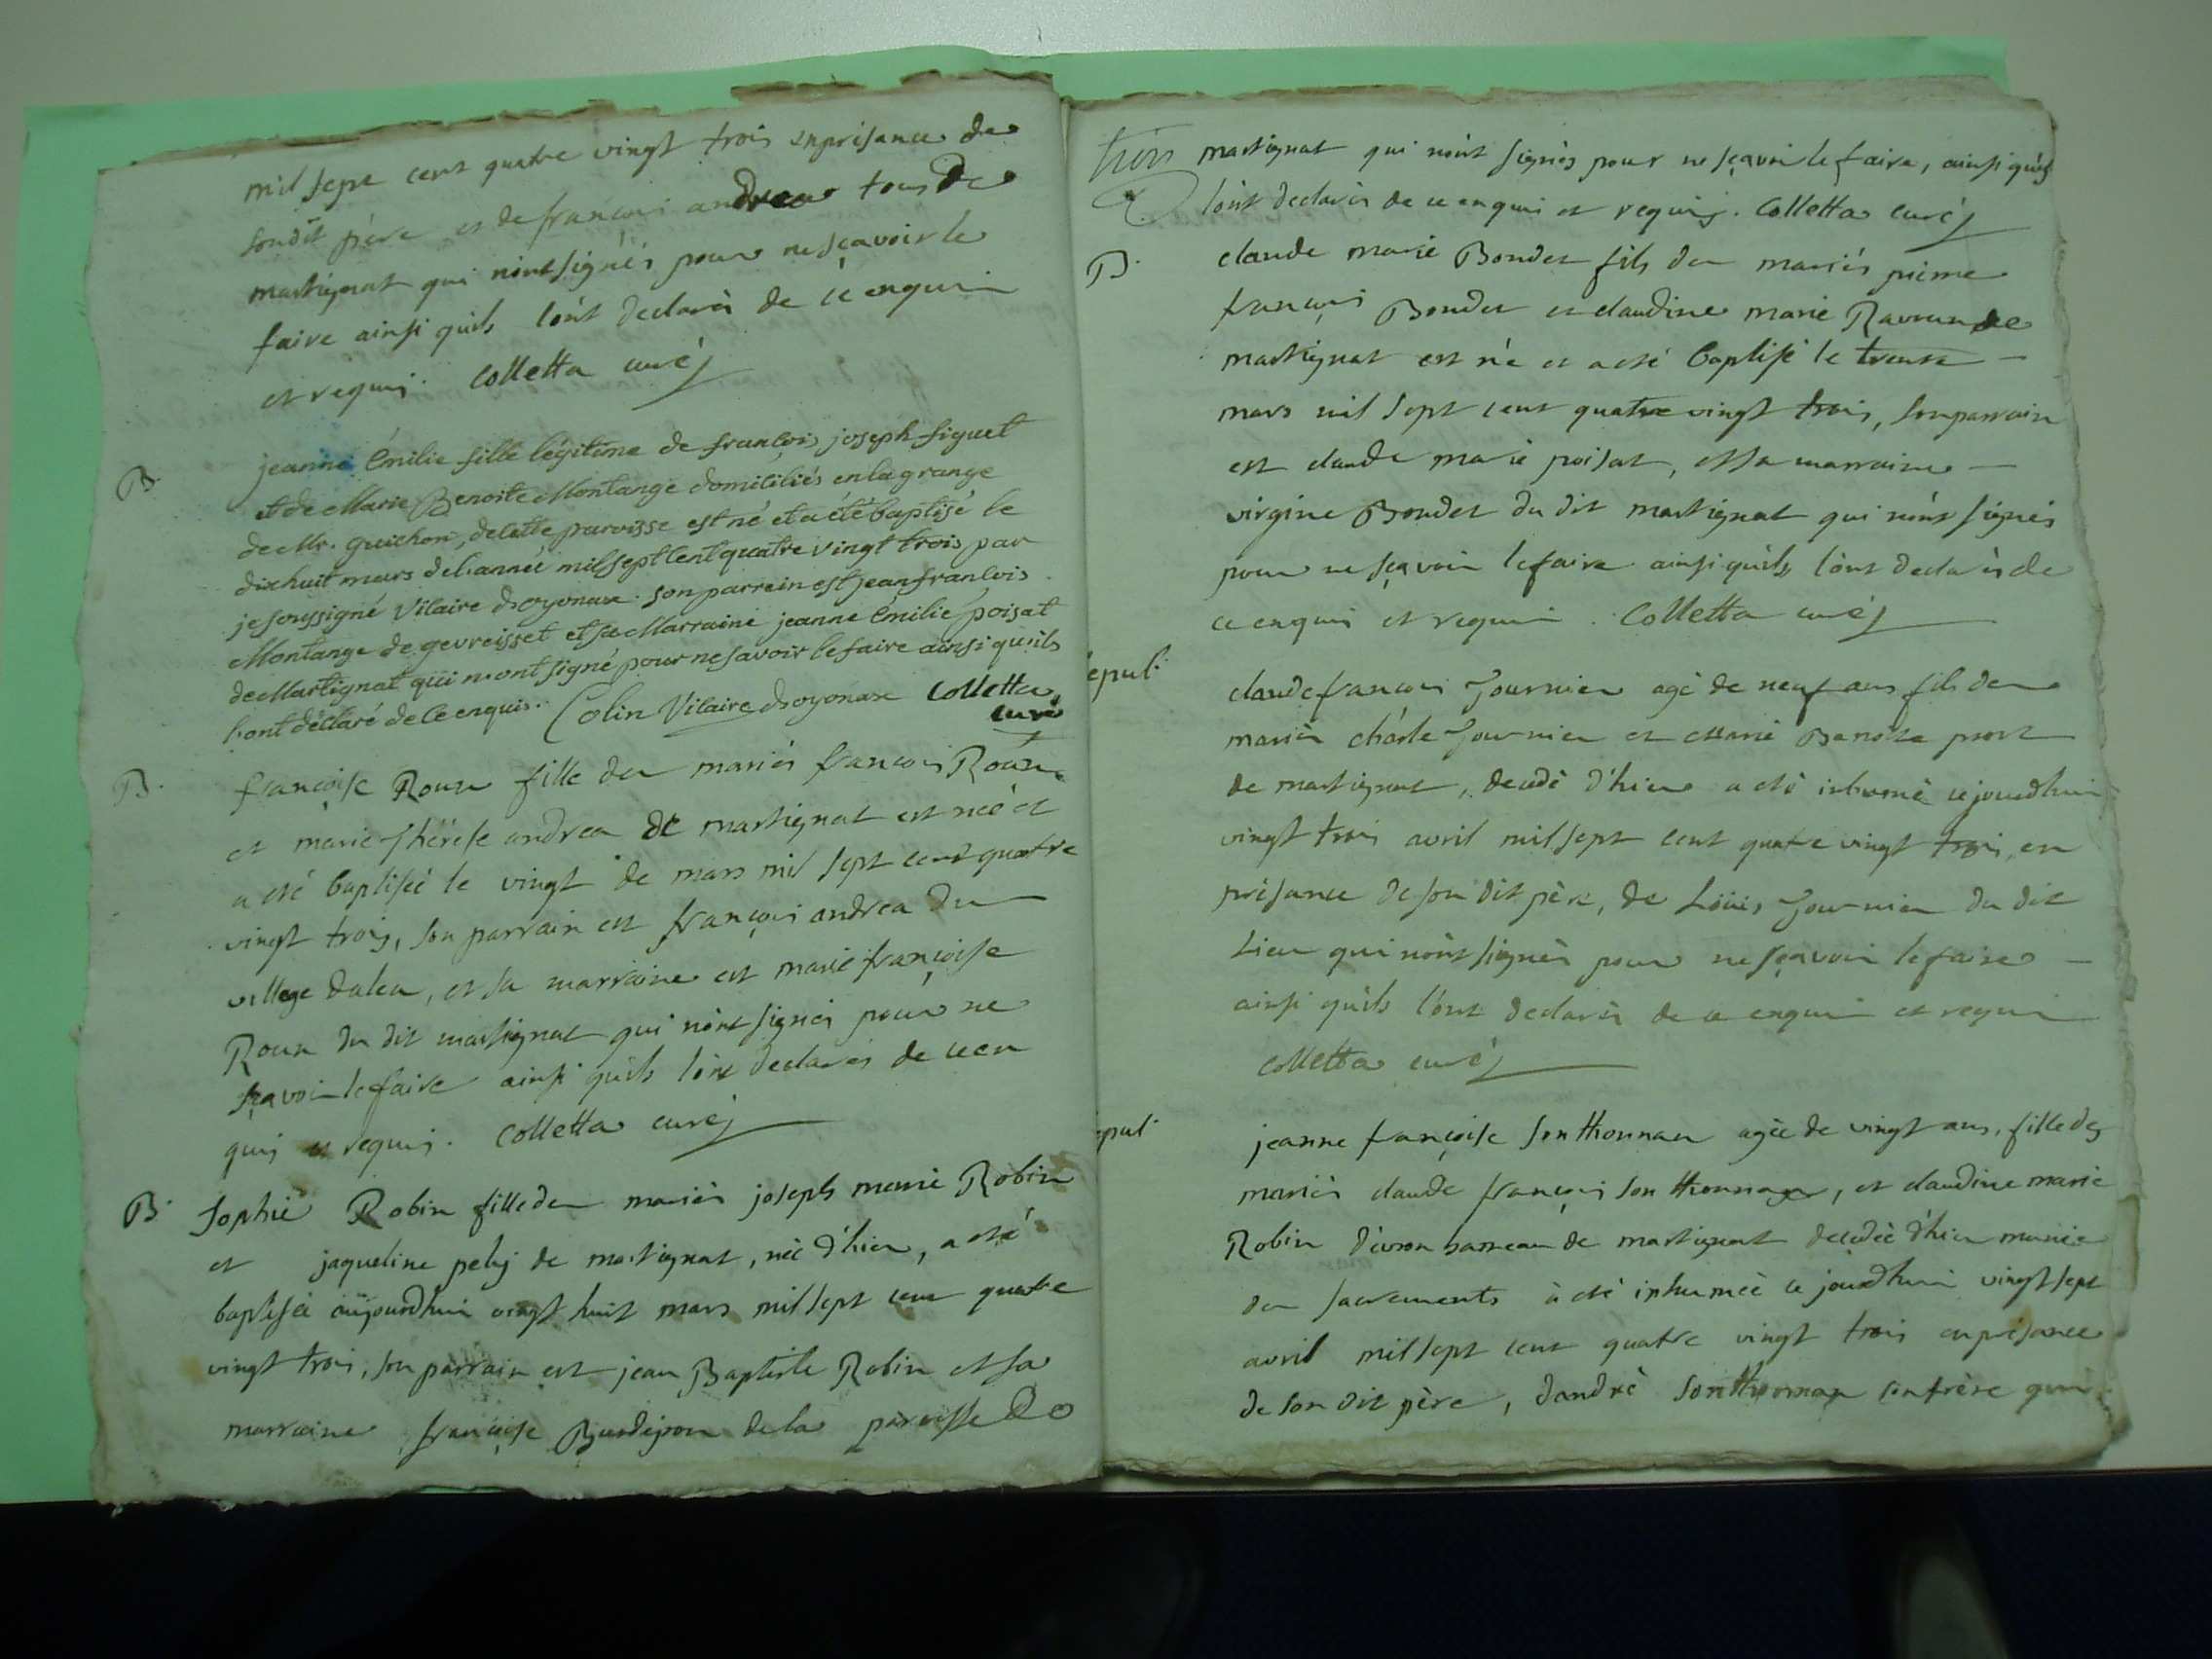 mil sept cent quatre vingt trois enprésance de
soudit père et de françois andrea tous de
martignat qui nont signés pour ne sçavoir le
faire ainsi quils lont declarés de ce enquis
et requis. Colletta curé
B.
jeanne Émilie fille légitime de françois joseph figuet
et de Marie Benoite Montange domiciliés en la grange
de Mr. guichon, de cette paroisse est né et a été baptisé le
dixhuit mars de l'année mil sept cent quatre vingt trois par
je soussigné vicaire d'oyonax. son parrein est jean françois
Montange de gevreisset et sa Marraine jeanne Émilie poisat
de Martignat qui n'ont signé pour ne savoir le faire ainsi qu'ils
l'ont déclaré de ce enquis. Colin Vicaire d'oyonax Colletta
curé
B.
françoise Roux fille des mariés françois Roux
et marie thérese andrea de martignat est née et
a eté baptiseé le vingt de mars mil sept cent quatre
vingt trois, son parrain est françois andrea du
village dalex, et sa marraine est marie françoise
Roux du dit martignat qui nont signés pour ne
sçavoir le faire ainsi quils lont declarés de ce en
quis et requis. Colletta curé
B.
Sophie Robin fille des mariés joseph marie Robin
et jaqueline de martignat, née d'hier, a eté
baptisée aujourdhui vingt huit mars mil sept cent quatre
vingt trois, son parrain est jean Baptiste Robin et sa
marraine françoise de la paroisse de
trois
martignat qui nont signés pour ne sçavoir le faire, ainsi quils
lont declarés de ce enquis et requis. Colletta curé
B.
claude marie Boudet fils des mariés pierre
françois Boudet et claudine marie de
martignat est né et a eté baptisé le trente
mars mil sept cent quatre vingt trois, son parrain
est claude marie poisat, et sa marraine
virgine Boudet du dit martignat qui nont signés
pour ne sçavoir le faire ainsi quils lont declarés de
ce enquis et requis. Colletta curé
épul.
claude françois Journier agé de neuf ans fils des
mariés charle Journier et Marie Benoite
de martignat, decedé d'hier a eté inhumé ce jourdhui
vingt trois avril mil sept cent quatre vingt trois, en
présance de son dit père, de Louis Journier du dit
Lieu qui nont signés pour ne sçavoir le faire
ainsi quils lont declarés de ce enquis et requis
Colletta curé
épul.
jeanne françoise Sonthonnax agée de vingt ans, fille des
mariés claude françois Sonthonnax, et claudine marie
Robin d'évron hameau de martignat decedée d'hier munie
des sacrements a eté inhumée ce jourdhui vingt sept
avril mil sept cent quatre vingt trois en présance
de son dit père, d'andré Sonthonnax son frère qui